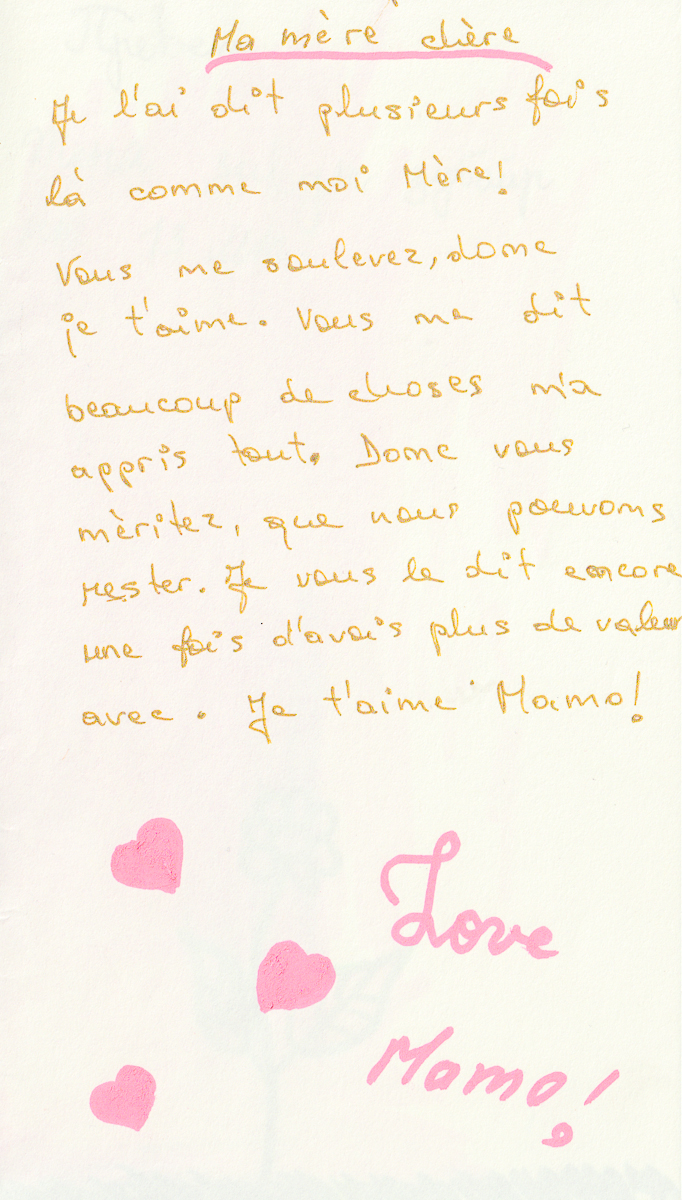 Ma mère chère
Je l'ai dit plusieurs fois
là comme moi Mère!
Vous me soulevez, dome
je t'aime. Vous me dit
beaucoup de choses m'a
appris tout. Dome vous
mèritez, que nous pouvoms
rester. Je vous le dit encore
une fois d'avais plus de valeur
avec. Je t'aime Mamo!
Love
Mamo!